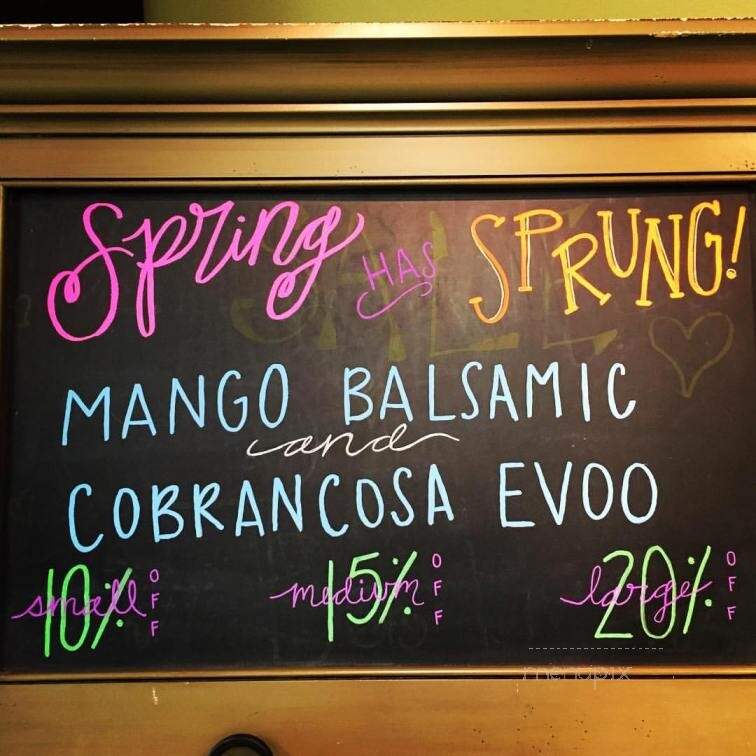 Spring HAS SPRUNG!
SALE
MANGO BALSAMIC
and
COBRANCOSA EVOO
small 10% OFF medium 15% OFF large 20% OFF
menupix